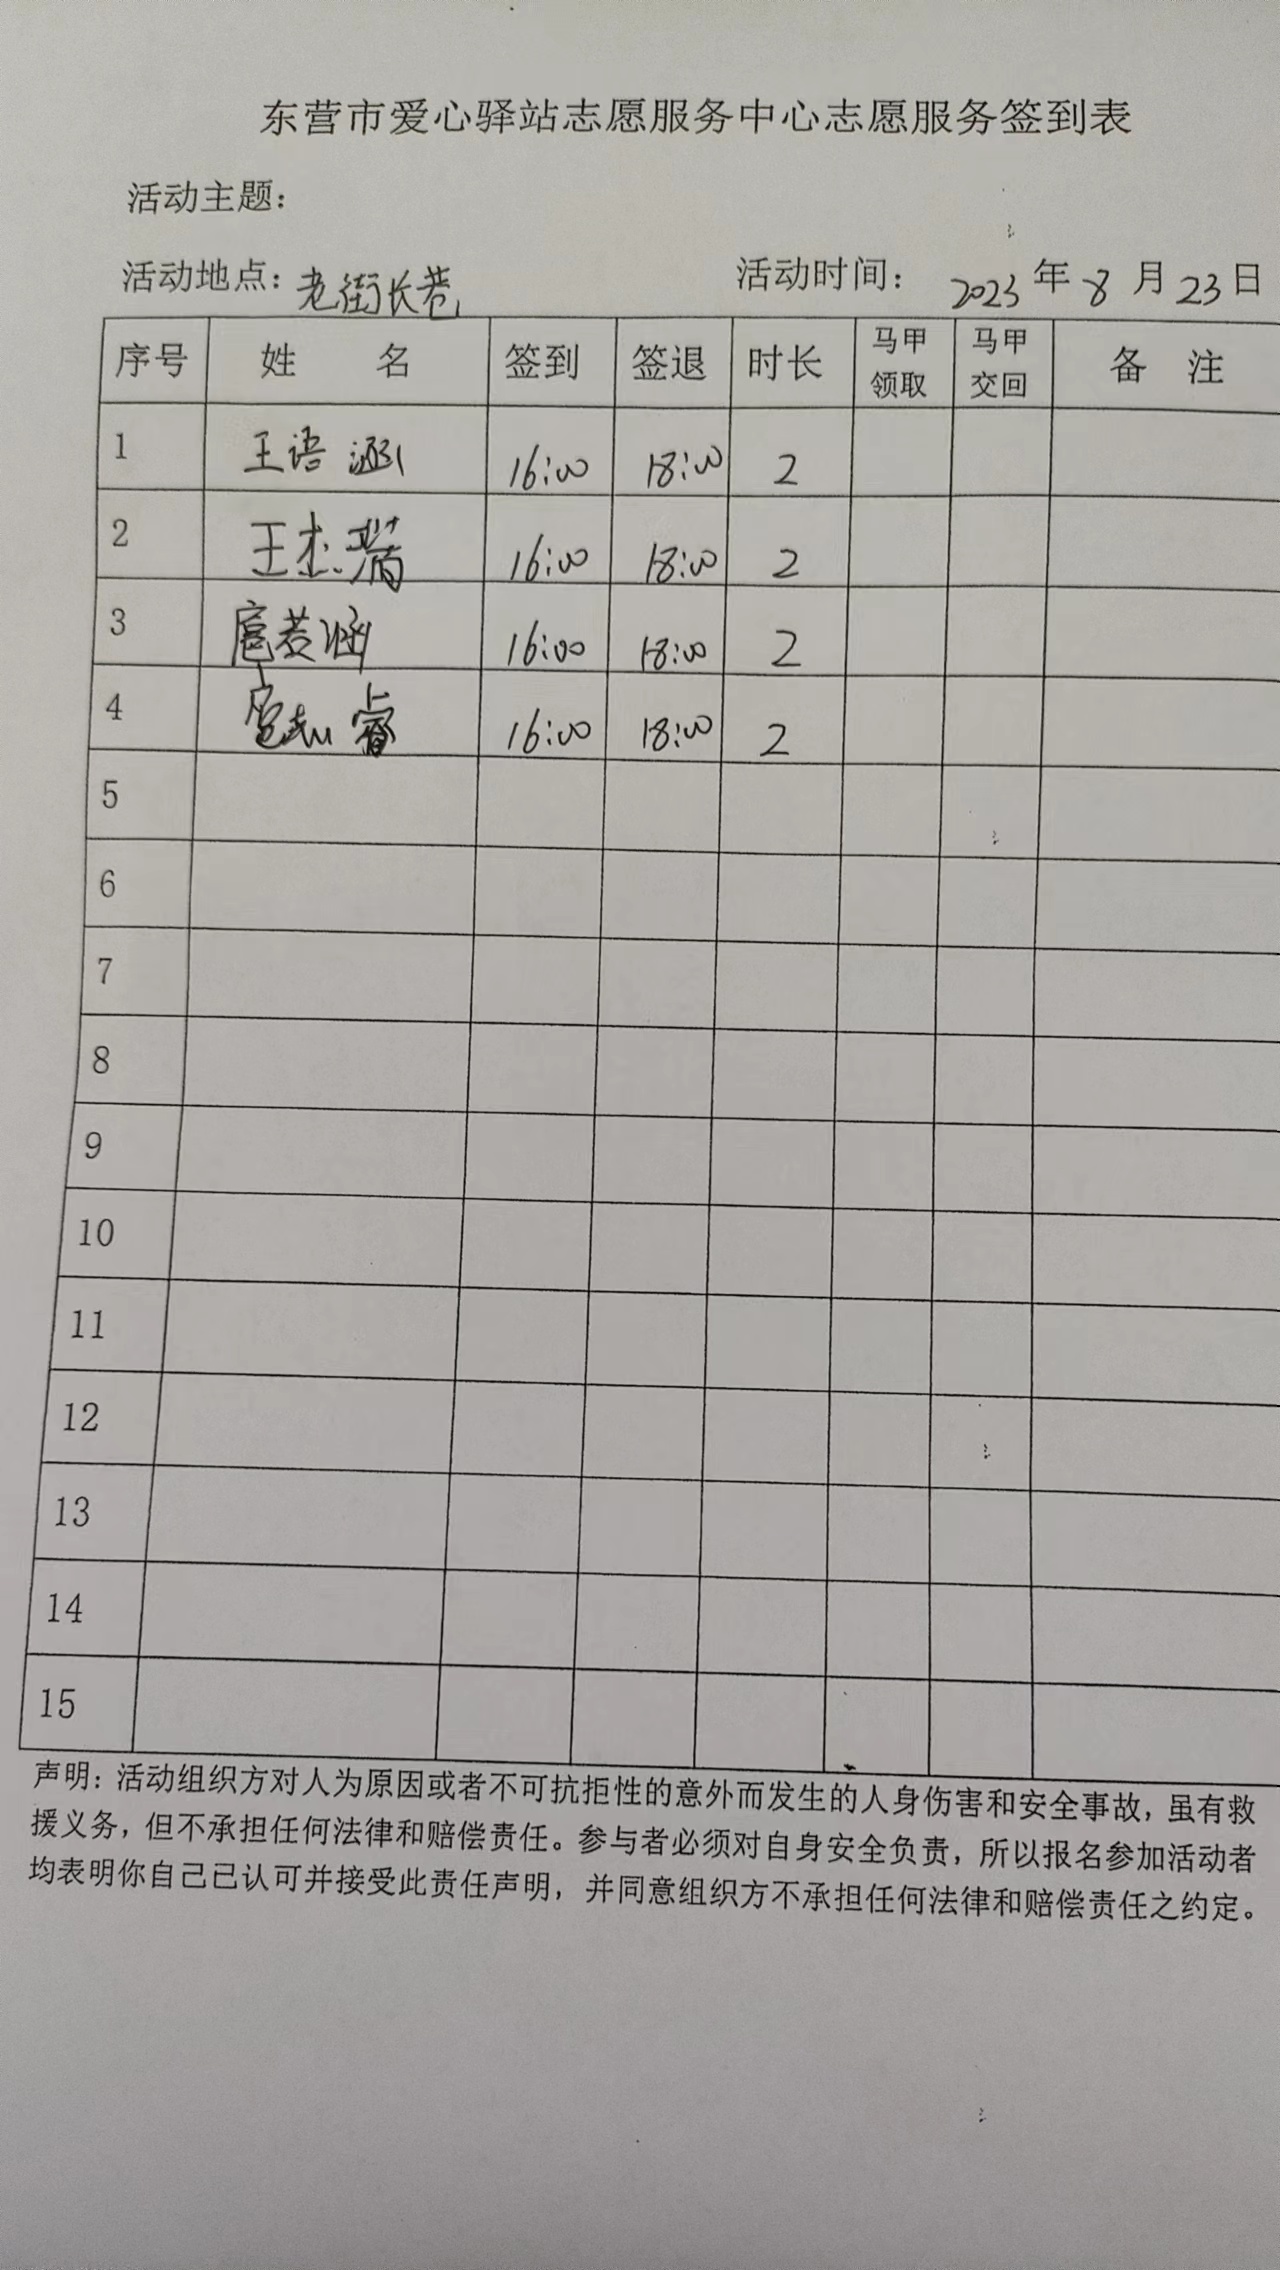 东营市爱心驿站志愿服务中心志愿服务签到表
活动主题：
活动地点：老街长巷 活动时间： 2023年8月23日
序号 姓 名 签到 签退 时长 马甲领取 马甲交回 备 注
1 王语涵 16:00 18:00 2
2 王杰瑞 16:00 18:00 2
3 扈若涵 16:00 18:00 2
4 扈志睿 16:00 18:00 2
5
6
7
8
9
10
11
12
13
14
15
声明：活动组织方对人为原因或者不可抗拒性的意外而发生的人身伤害和安全事故，虽有救
援义务，但不承担任何法律和赔偿责任。参与者必须对自身安全负责，所以报名参加活动者
均表明你自己已认可并接受此责任声明，并同意组织方不承担任何法律和赔偿责任之约定。